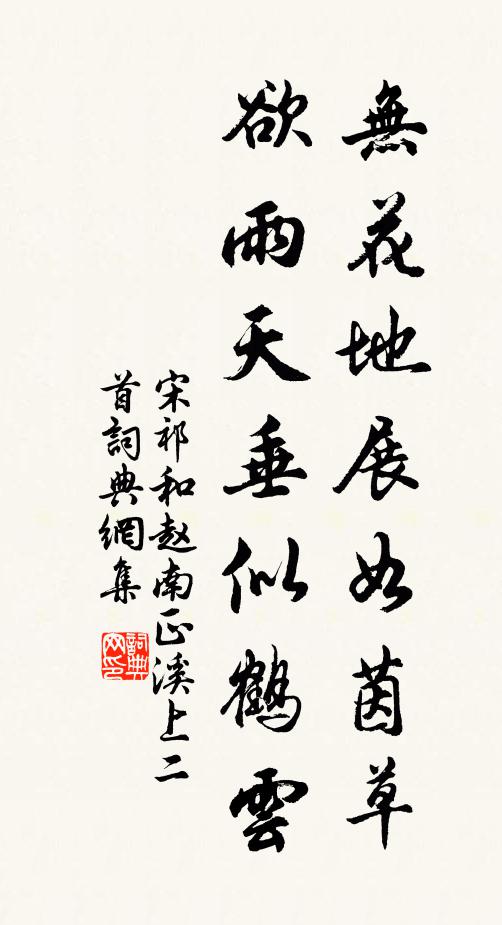 無花地展如茵草
欲雨天垂似鶴雲
宋祁和赵南正溪上二
首詞典網集
詞典
网印